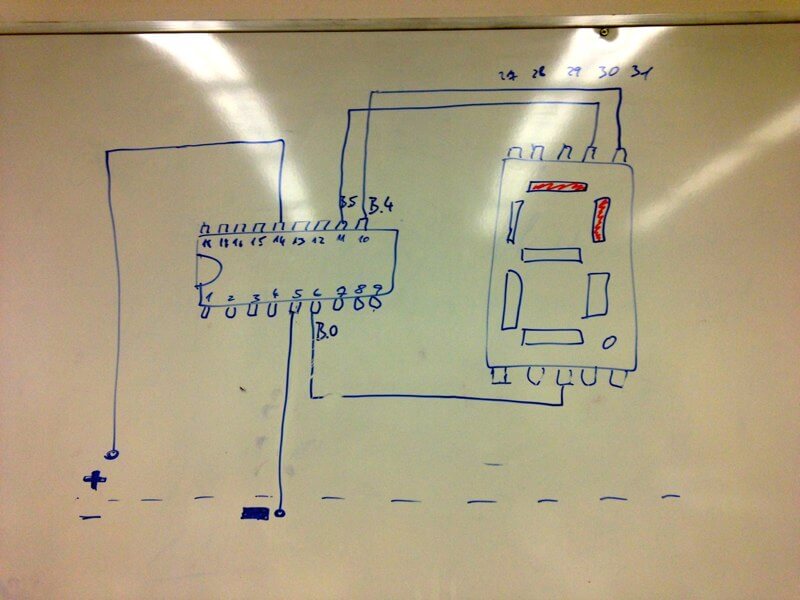 27 28 29 30 31
B5 B.4
18 17 16 15 14 13 12 11 10
1 2 3 4 5 6 7 8 9
B.0
+
-